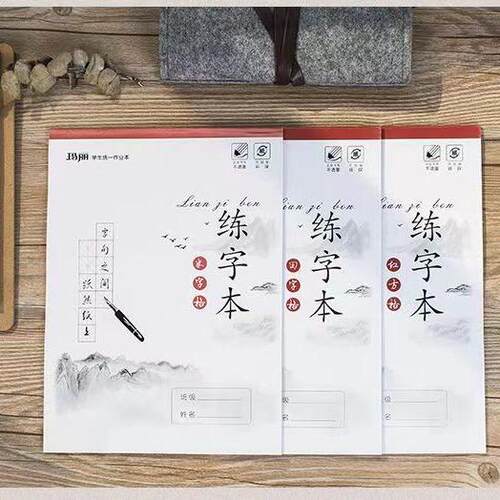 玛丽 学生统一作业本
不透墨
环保
Lian zi ben
练字本
米字格
字句之间
跃然纸上
班级
姓名
不透墨
环保
Lian zi ben
练字本
田字格
不透墨
环保
Lian zi ben
练字本
红方格